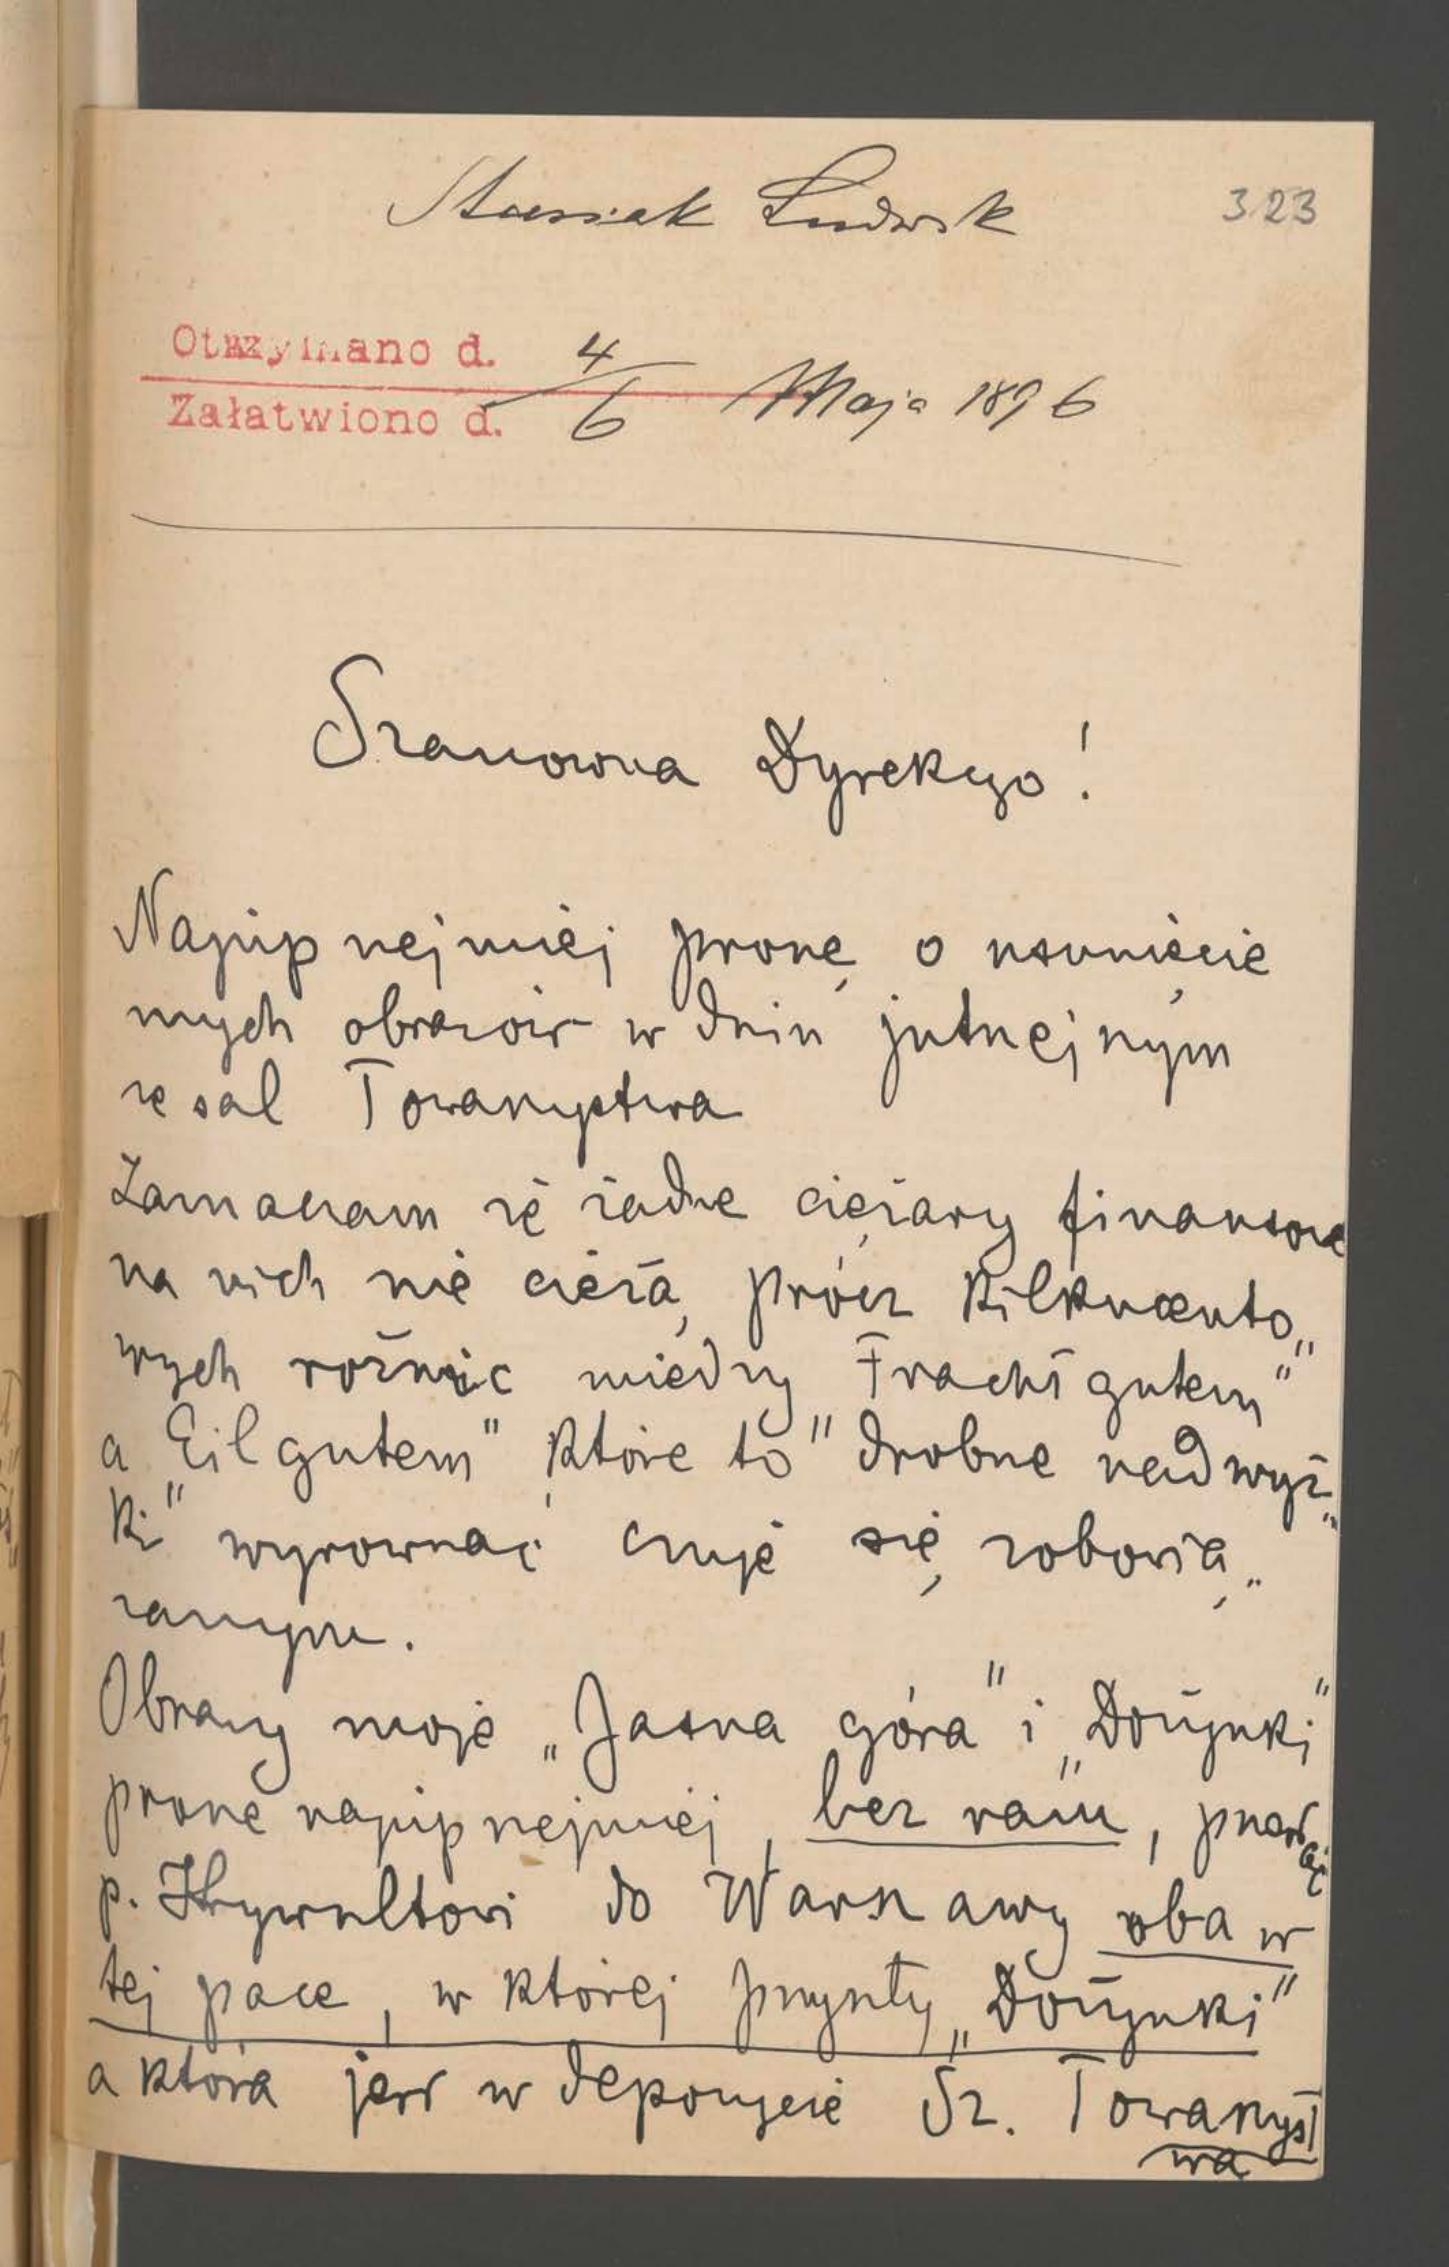 Stasiak Ludwik
323
Otrzymano d. 4
Załatwiono d. 6 Maja 1896
Szanowna Dyrekcyo!
Najuprzejmiej proszę o usunięcie
mych obrazów w dniu jutrzejszym
ze sal Towarzystwa
Zaznaczam że żadne ciężary finansowe
na nich nie ciężą, prócz kilkucento„
wych różnic między „Frachtgutem"
a „Eilgutem" które to "drobne nadwyż„
ki" wyrównać czuję się zobowią„
zanym.
Obrazy moje „Jasna góra" i „Dożynki"
proszę najuprzejmiej, bez ram, przesłać
p. Krywultowi do Warszawy oba w
tej pace, w której przyszły „Dożynki"
a która jest w depozycie Sz. Towarzyst
wa